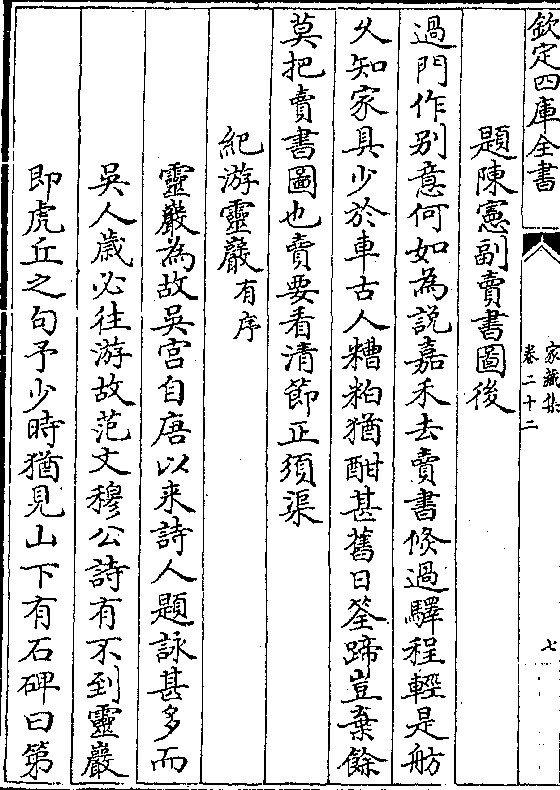 欽定四庫全書
家藏集
卷二十二
七
題陳憲副賣書圖後
過門作别意何如為説嘉禾去賣書倐過驛程輕是舫
乆知家具少於車古人糟粕猶酣甚舊日筌蹄豈棄餘
莫把賣書圖也賣要看清節正須渠
紀游靈巖有序
靈巖為故吳宫自唐以来詩人題詠甚多而
吳人歳必往游故范文穆公詩有不到靈巖
即虎丘之句予少時猶見山下有石碑曰第